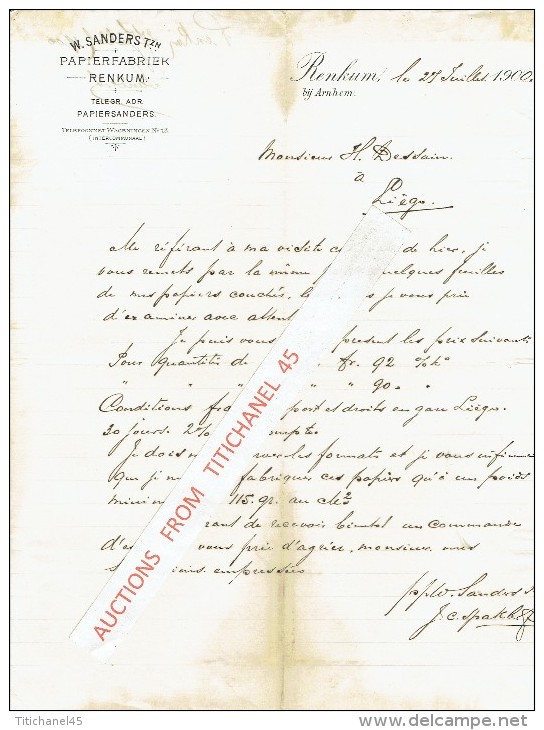 W. SANDERS TZN
PAPIERFABRIEK
RENKUM.
TELEGR. ADR.
PAPIERSANDERS.
TELEFOONNET WAGENINGEN No 13
(INTERCOMMUNAAL)
Renkum, le 27 Juillet 1900.
bij Arnhem.
Monsieur H. Dessain.
à
Liége.
Me référant à ma visite de hier, je
vous remets par la même quelques feuilles
de mes papiers couchés, je vous prie
d'examiner avec
Je puis vous présent les prix suivants
Pour quantités de fr. 92 % k°
" " " " 90 " "
Conditions port et droits en gare Liége.
30 jours 2%
Je dois les formats et je vous
que je fabriquer ces papiers qu'à un poids
115 gr. au
de recevoir bientot un commande
vous prie d'agréer, monsieur, mes
empressées
pp W. Sanders
J. C.
AUCTIONS FROM TITICHANEL 45
Titichanel45
www.delcampe.net